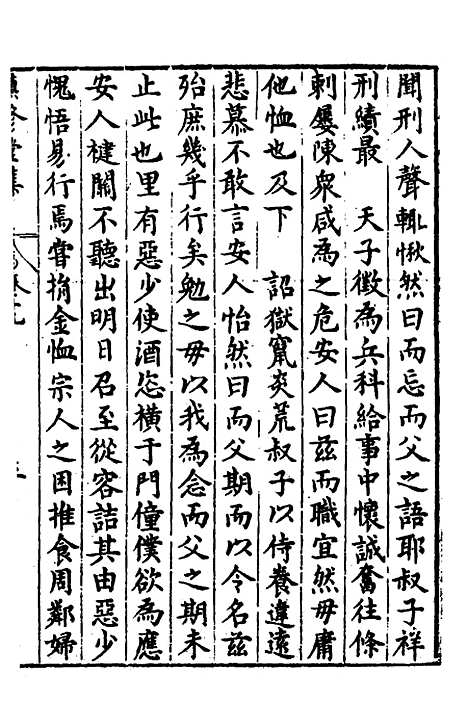 聞刑人聲輒愀然曰而忘而父之語耶叔子祥
刑績最　天子徵為兵科給事中懷誠奮往條
刺屢陳衆咸為之危安人曰茲而職宜然毋庸
他恤也及下　詔獄竄炎荒叔子以侍養違遠
悲慕不敢言安人怡然曰而父期而以令名茲
殆庶幾乎行矣勉之毋以我為念而父之期未
止此也里有惡少使酒恣橫于門僮僕欲為應
安人揵關不聽出明日召至從容詰其由惡少
愧悟易行焉嘗捐金恤宗人之困推食周鄰婦